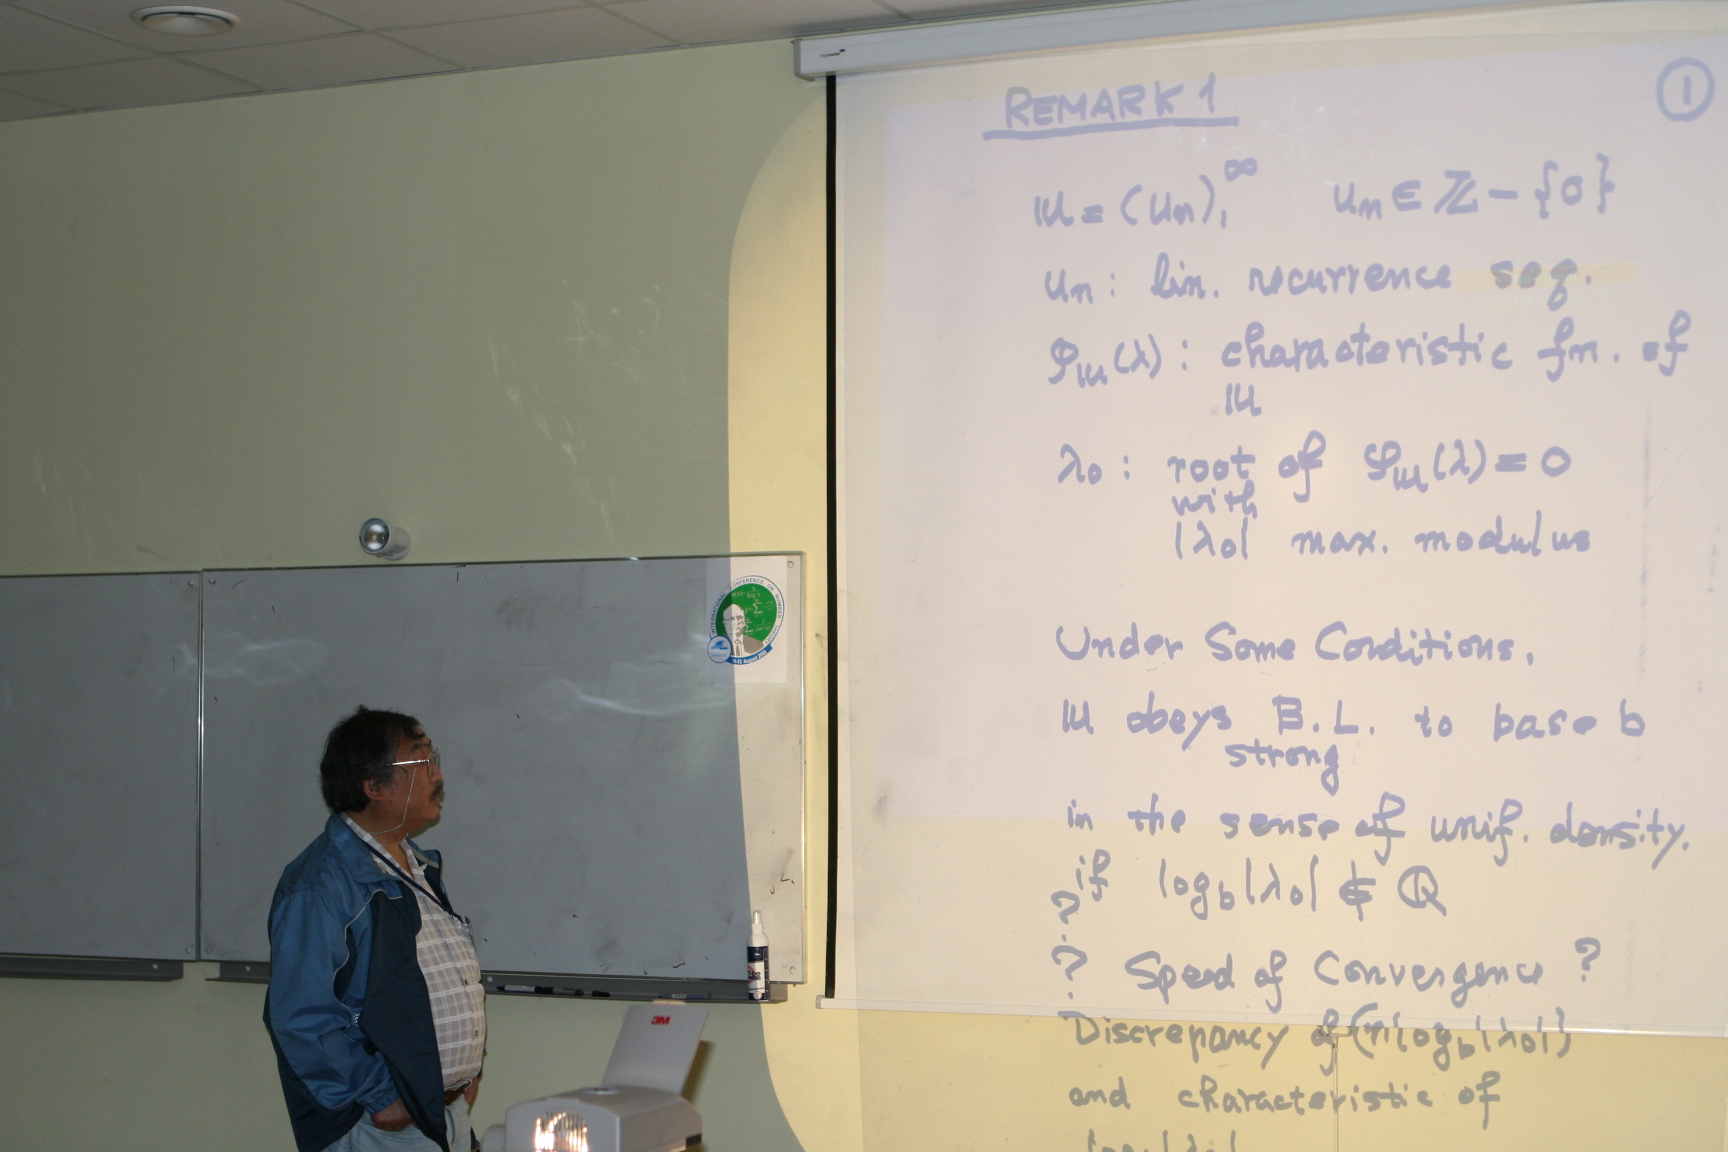 REMARK 1
①
𝕦 = (uₙ)₁^∞ uₙ ∈ ℤ − {0}
uₙ : lin. recurrence seq.
φ_𝕦(λ) : characteristic fn. of
𝕦
λ₀ : root of φ_𝕦(λ) = 0
with
|λ₀| max. modulus
Under Some Conditions,
𝕦 obeys B.L. to base b
strong
in the sense of unif. density.
if log_b|λ₀| ∉ ℚ
?
? Speed of Convergence ?
Discrepancy of (n log_b|λ₀|)
and characteristic of
log_b|λ₀|
INTERNATIONAL CONFERENCE ON NUMBER THEORY
3M